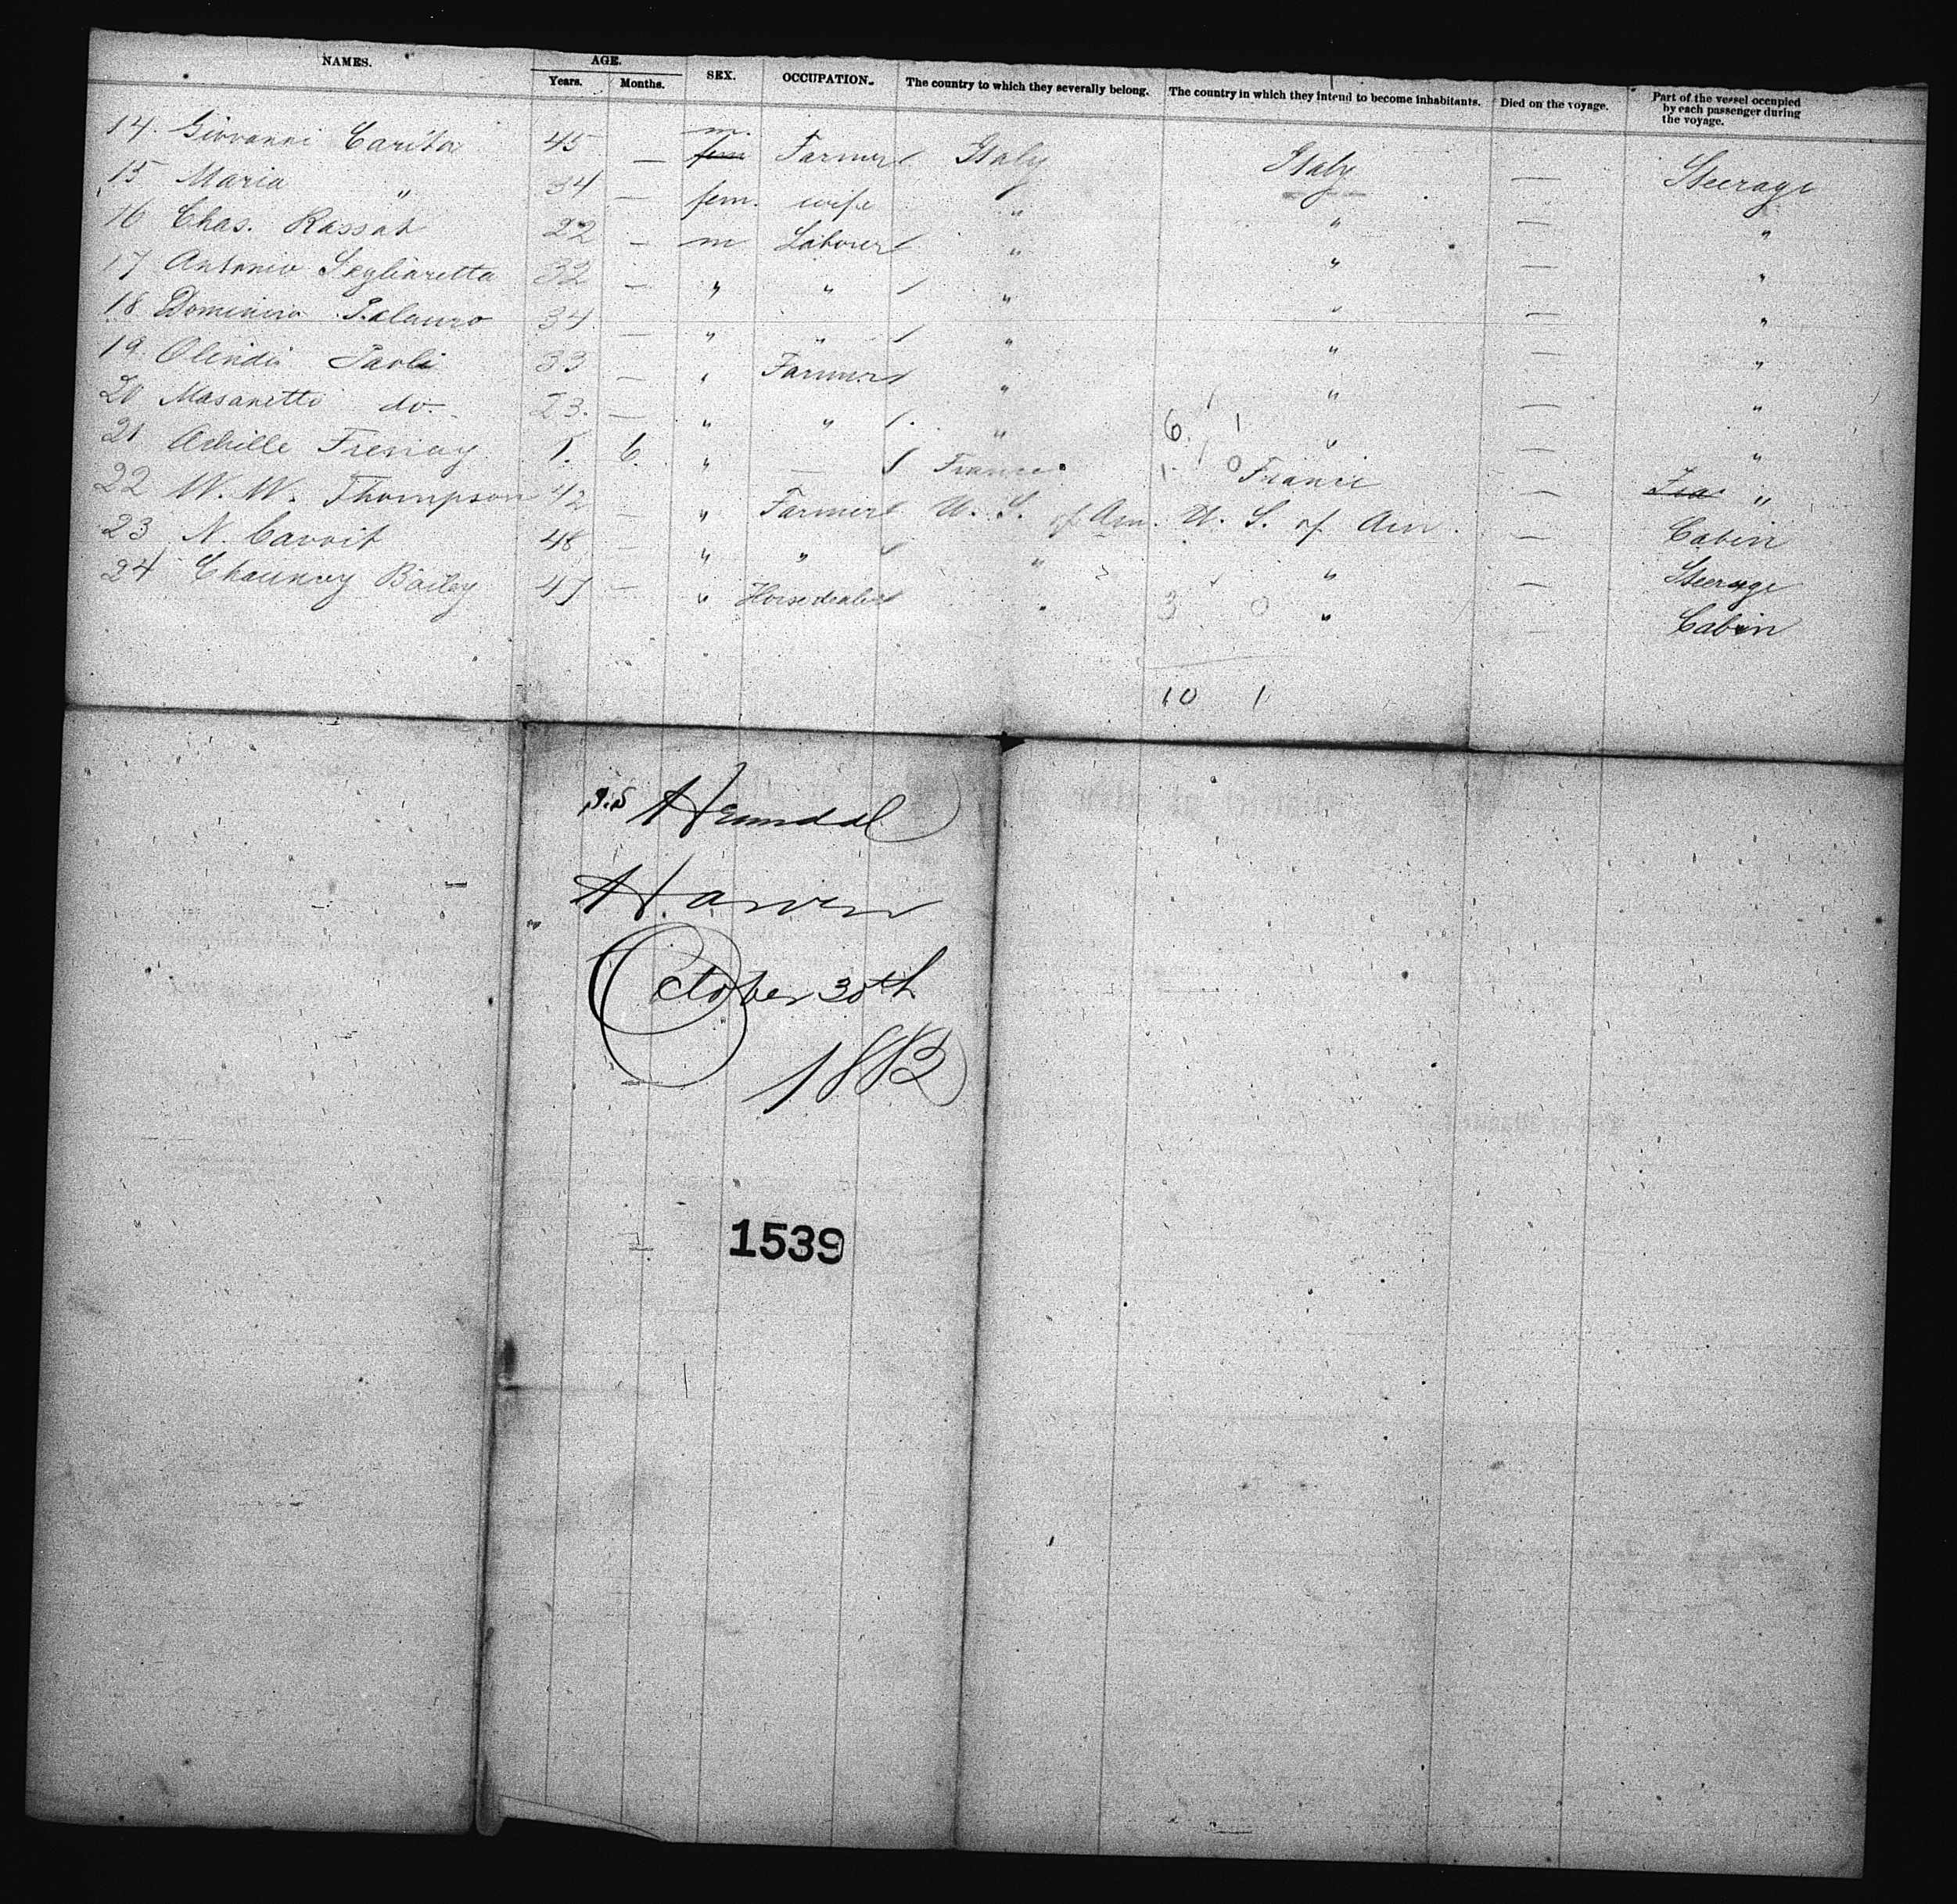 NAMES. AGE. Years. Months. SEX. OCCUPATION. The country to which they severally belong. The country in which they intend to become inhabitants. Died on the voyage. Part of the vessel occupied by each passenger during the voyage.
14. Giovanni Carita 45 — m. fem Farmer Italy Italy — Steerage
15 Maria " 34 — fem. wife " " — "
16 Chas. Rassat 22 — m Laborer " " — "
17 Antonio 32 — " " " " — "
18 Dominico 34 — " " " " — "
19. Olindo Paoli 33 — " Farmer " " — "
20 Masanetto do. 23. — " " " " — "
6. 1
21 Achille Fresnay 1. 6. " — France France — "
1 0
22 W. W. Thompson 42 — " Farmer U. S. of Am. U. S. of Am. — Cabin
23 N. 48 — " " " " — Steerage
24 Chauncey Bailey 47 — " Horsedealer " " — Cabin
3 0
10 1
S.S
October 30th
1882
1539